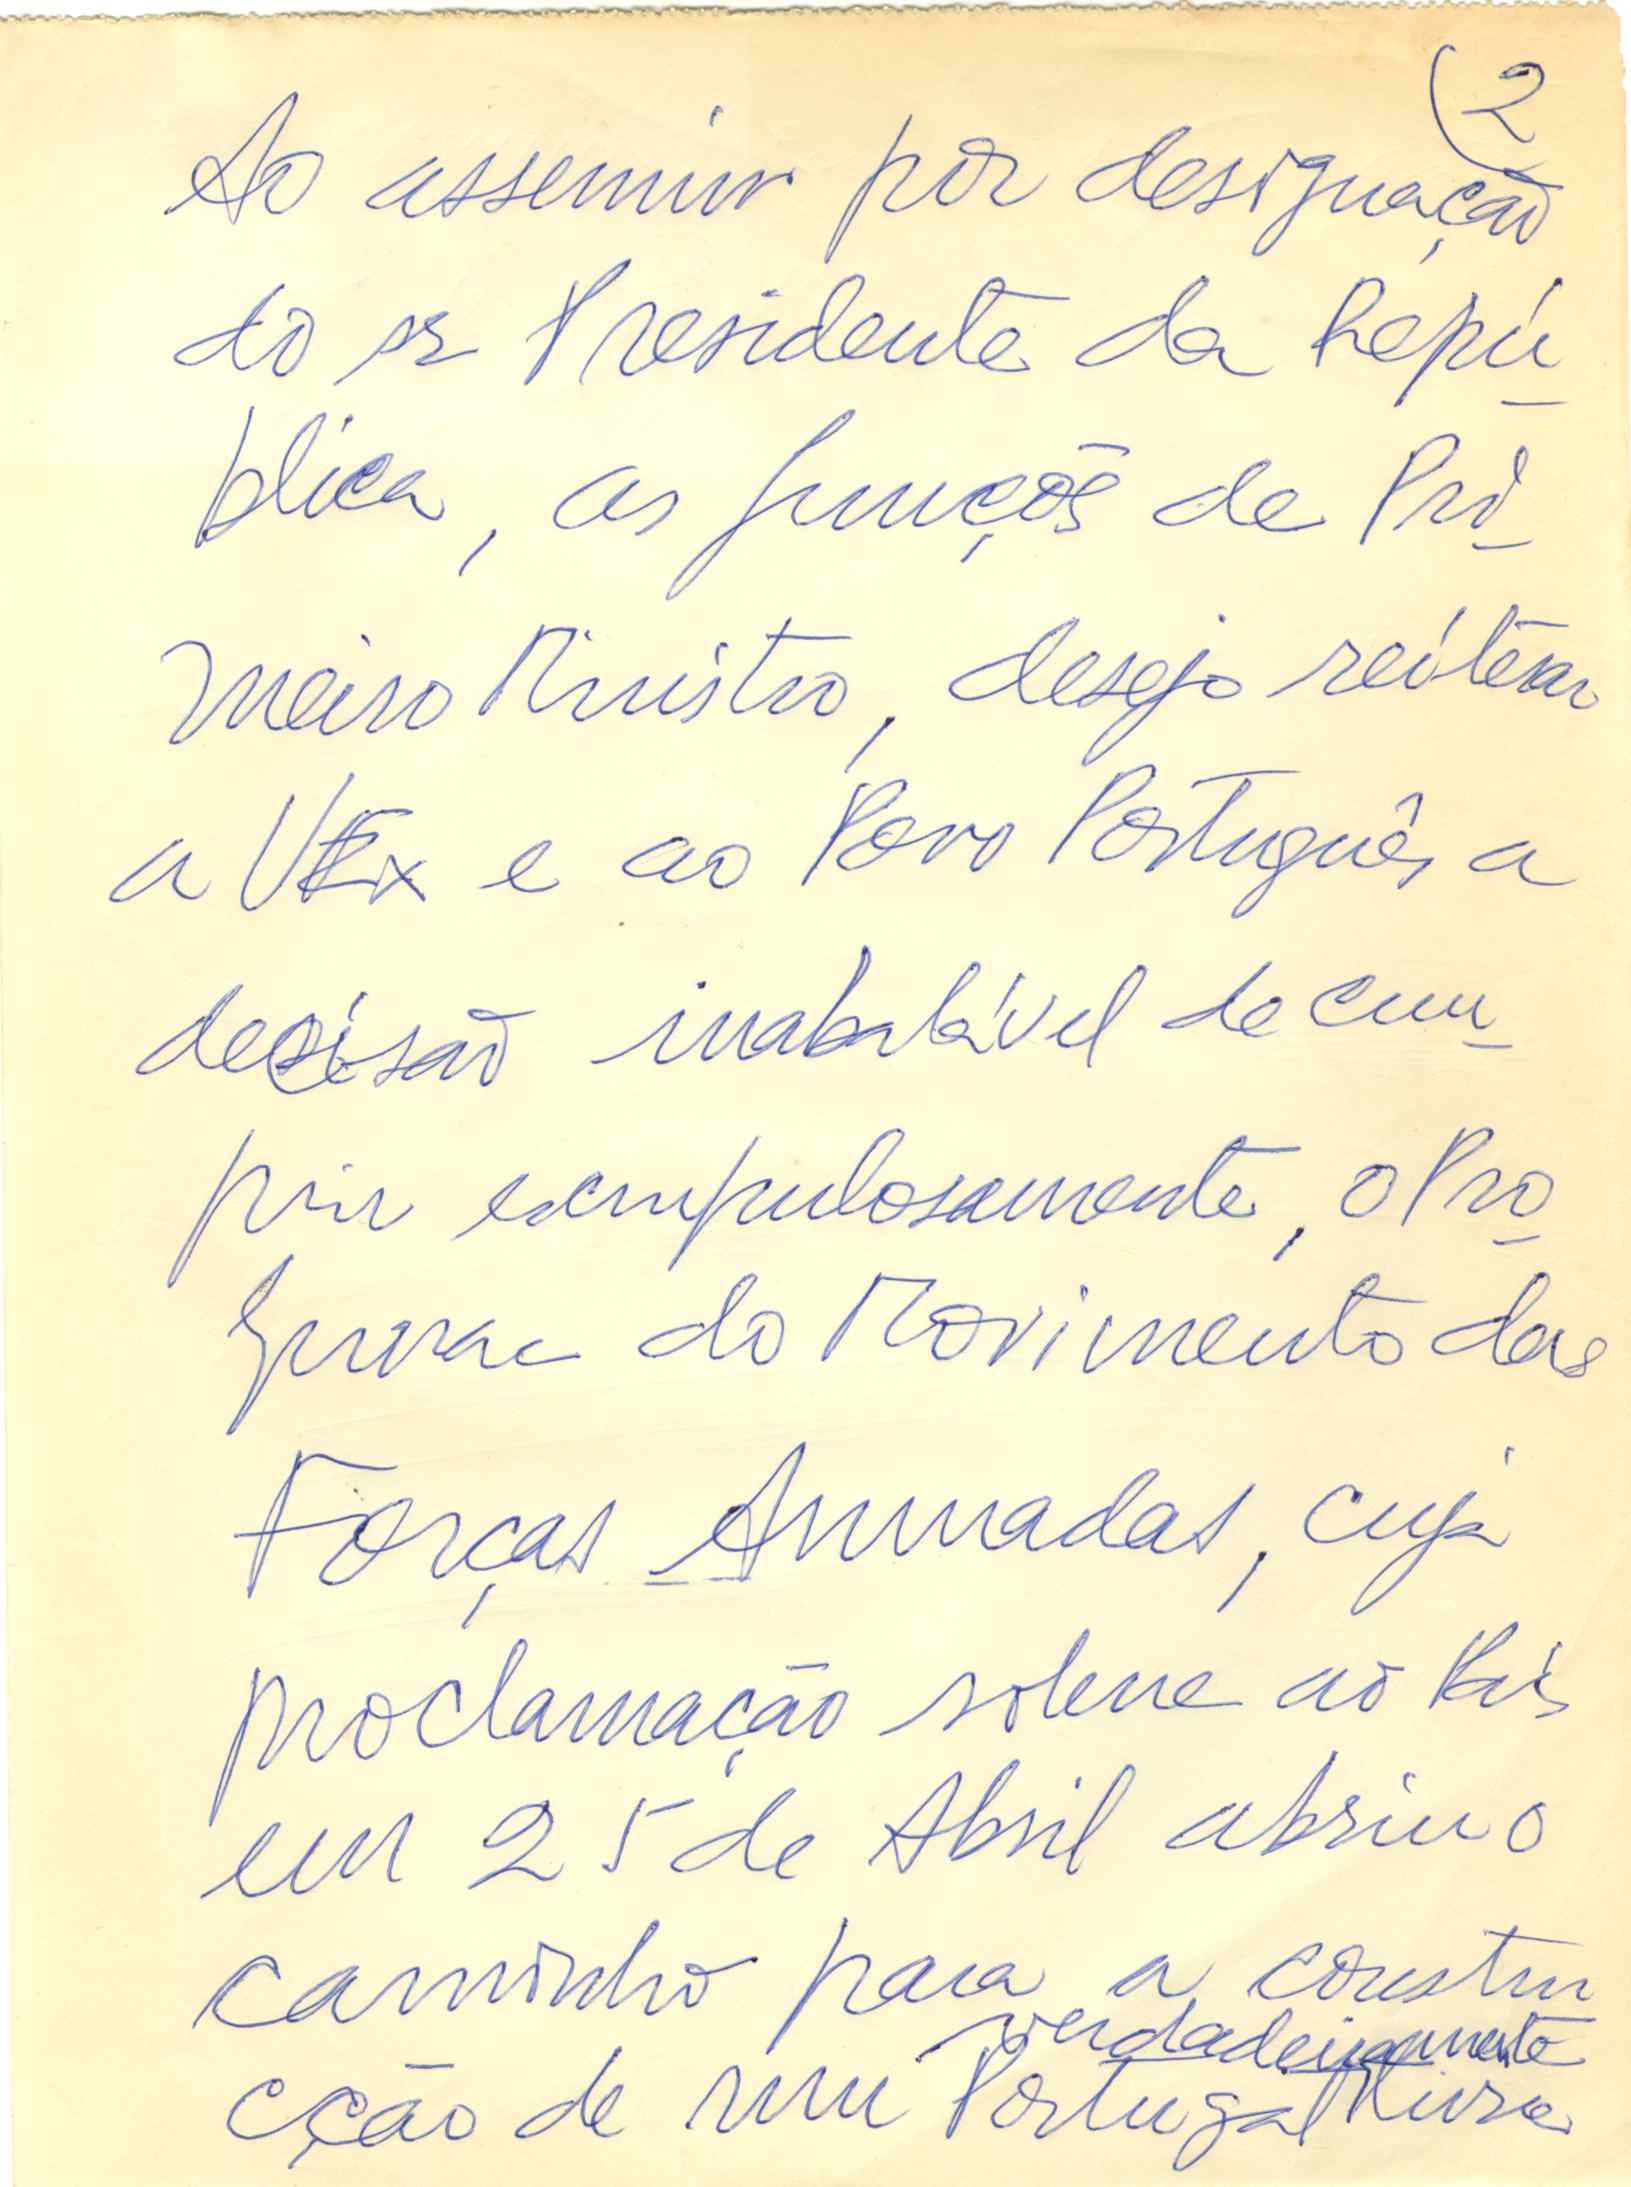 (2
Ao assumir por designação
do sr Presidente da Repú-
blica, as funções de Pri-
meiro Ministro, desejo reiterar
a VEx e ao Povo Português a
decisão inabalável de cum-
prir escrupulosamente, o Pro-
grama do Movimento das
Forças Armadas, cuja
proclamação solene ao País
em 25 de Abril abriu o
caminho para a constru
verdadeiramente
cção de um Portugal livre